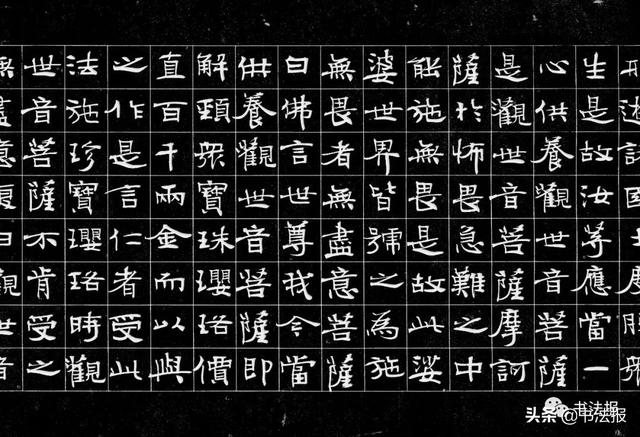 形遊諸國土度脫眾
生是故汝等應當一
心供養觀世音菩薩
是觀世音菩薩摩訶
薩於怖畏急難之中
能施無畏是故此娑
婆世界皆號之為施
無畏者無盡意菩薩
白佛言世尊我今當
供養觀世音菩薩即
解頸眾寶珠瓔珞價
直百千兩金而以與
之作是言仁者受此
法施珍寶瓔珞時觀
世音菩薩不肯受之
無盡意復白觀世音
书法报
头条 @书法报